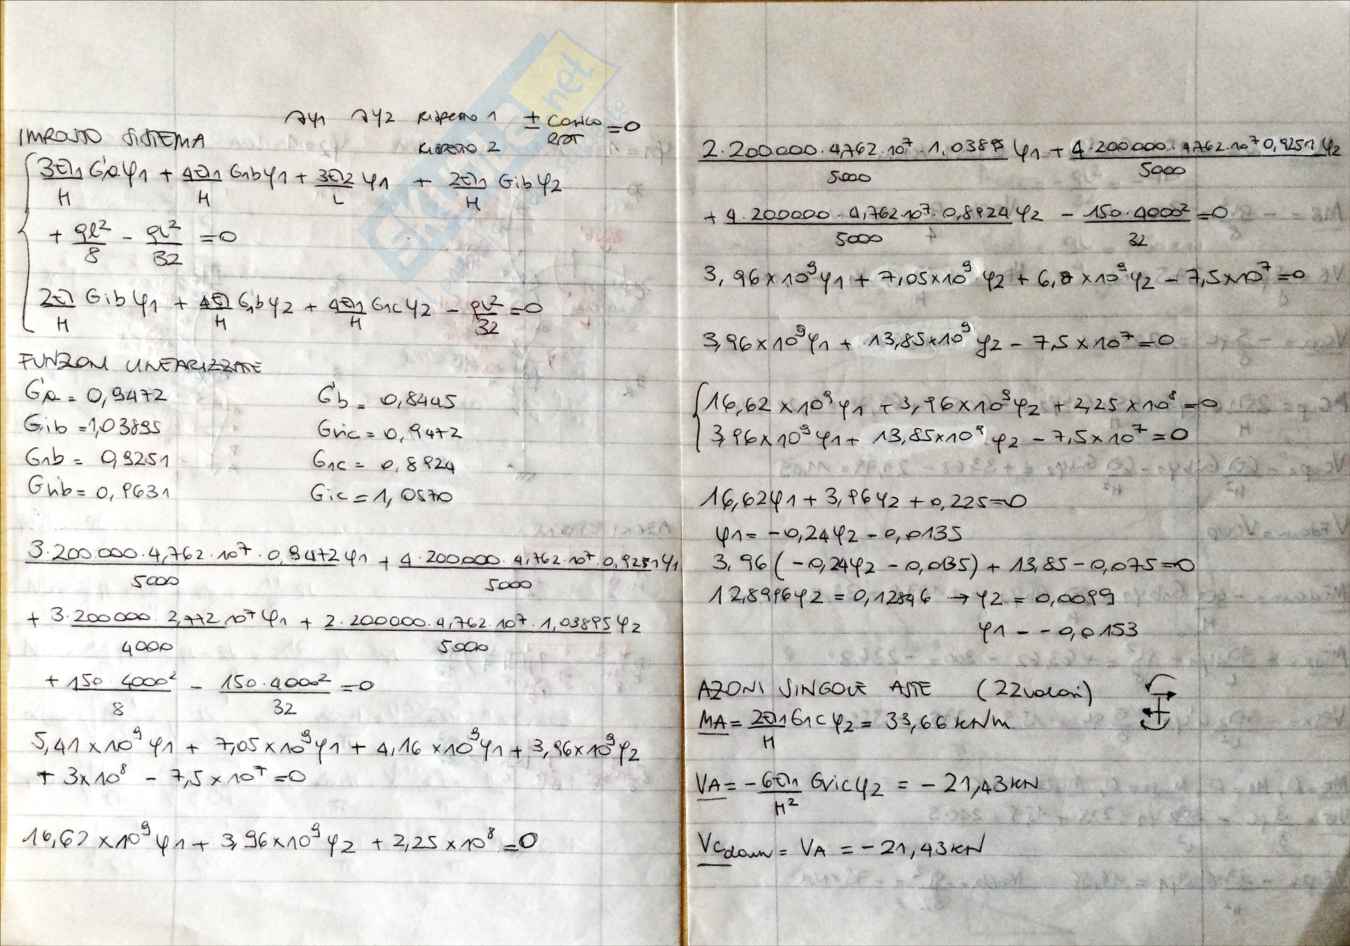 ∂φ1 ∂φ2 RISPETTO 1 ± CARICO ROT =0
IMPOSTO SISTEMA
RISPETTO 2
3EJ1/H G'a φ1 + 4EJ1/H G1b φ1 + 3EJ2/L φ1 + 2EJ1/H Gib φ2
+ ql²/8 - ql²/32 =0
2EJ/H Gib φ1 + 4EJ/H G1b φ2 + 4EJ1/H G1c φ2 - ql²/32 =0
FUNZIONI LINEARIZZATE
G'a = 0,9472 G'b = 0,8445
Gib = 1,03895 Gvic = 0,9472
G1b = 0,9251 G1c = 0,8924
0,9631 Gic = 1,0570
3·200000·4,762·10⁷·0,9472φ1/5000 + 4·200000·4,762·10⁷·0,9251φ1/5000
+ 3·200000·2,772·10⁷φ1/4000 + 2·200000·4,762·10⁷·1,03895φ2/5000
+ 150·4000²/8 - 150·4000²/32 =0
5,41×10⁹φ1 + 7,05×10⁹φ1 + 4,16×10⁹φ1 + 3,96×10⁹φ2
+ 3×10⁸ - 7,5×10⁷ =0
16,62×10⁹φ1 + 3,96×10⁹φ2 + 2,25×10⁸ =0
2·200000·4762·10⁷·1,03895/5000 φ1 + 4·200000·4762·10⁷0,9251/5000 φ2
+ 4·200000·4,762·10⁷·0,8924φ2/5000 - 150·4000²/32 =0
3,96×10⁹φ1 + 7,05×10⁹φ2 + 6,8×10⁹φ2 - 7,5×10⁷ =0
3,96×10⁹φ1 + 13,85×10⁹φ2 - 7,5×10⁷ =0
16,62×10⁹φ1 + 3,96×10⁹φ2 + 2,25×10⁸ =0
3,96×10⁹φ1 + 13,85×10⁹φ2 - 7,5×10⁷ =0
16,62φ1 + 3,96φ2 + 0,225=0
φ1= -0,24φ2 - 0,0135
3,96(-0,24φ2 - 0,0135) + 13,85 - 0,075=0
12,8996φ2 = 0,12846 → φ2 = 0,0099
φ1 - -0,0153
AZIONI SINGOLE ASTE (22valori)
MA = 2EJ1/H G1c φ2 = 33,66 kNm
VA = -6EJ1/H² Gvic φ2 = -21,43 kN
Vcdown = VA = -21,43 kN